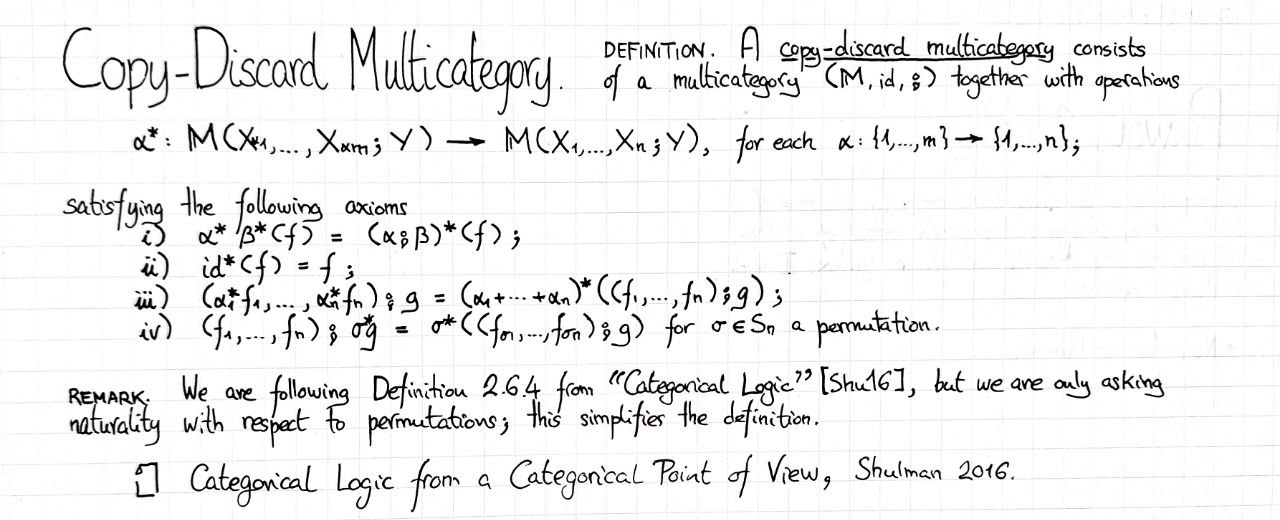 Copy-Discard Multicategory.
DEFINITION. A copy-discard multicategory consists
of a multicategory (M, id, ⨾) together with operations
α*: M(Xα1,..., Xαm; Y) → M(X1,...,Xn; Y), for each α: {1,...,m} → {1,...,n};
satisfying the following axioms
i) α* β*(f) = (α⨾β)*(f);
ii) id*(f) = f;
iii) (α1*f1,..., αn*fn)⨾ g = (α1+···+αn)*((f1,...,fn)⨾g);
iv) (f1,...,fn)⨾ σ*g = σ*((fσ1,...,fσn)⨾g) for σ∈Sn a permutation.
REMARK. We are following Definition 2.6.4 from “Categorical Logic” [Shu16], but we are only asking
naturality with respect to permutations; this simplifies the definition.
[] Categorical Logic from a Categorical Point of View, Shulman 2016.